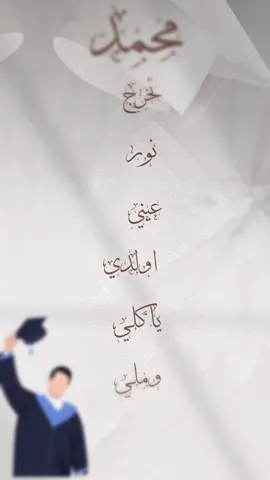 محمد
تخرج
نور
عيني
اولدي
ياكلي
وملي